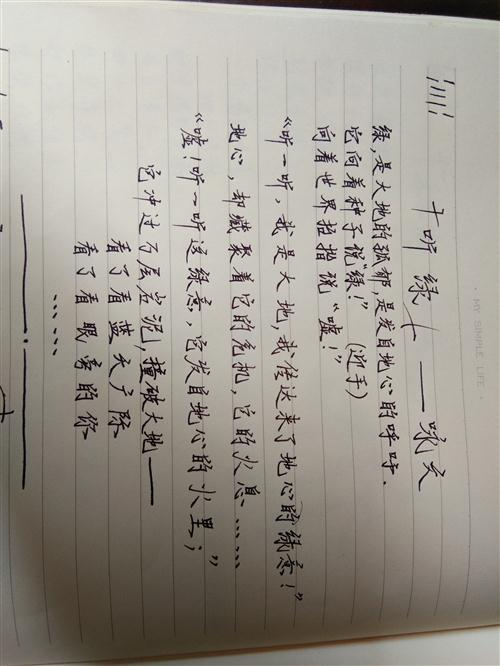 听绿 —— 咏文
绿,是大地的孤郁,是发自地心的呼呼.
它向着种子说"绿!"(迎手)
向着世界招招说"嘘!"
"听一听,我是大地,我传达来了地心的绿意!"
地心,却藏聚着它的危机,它的火息……
"嘘!听一听这绿意,它发自地心的火里;"
它冲过万层岩泥,撞破大地——
看了看蓝天广际
看了看眼旁的你
……
MY SIMPLE LIFE